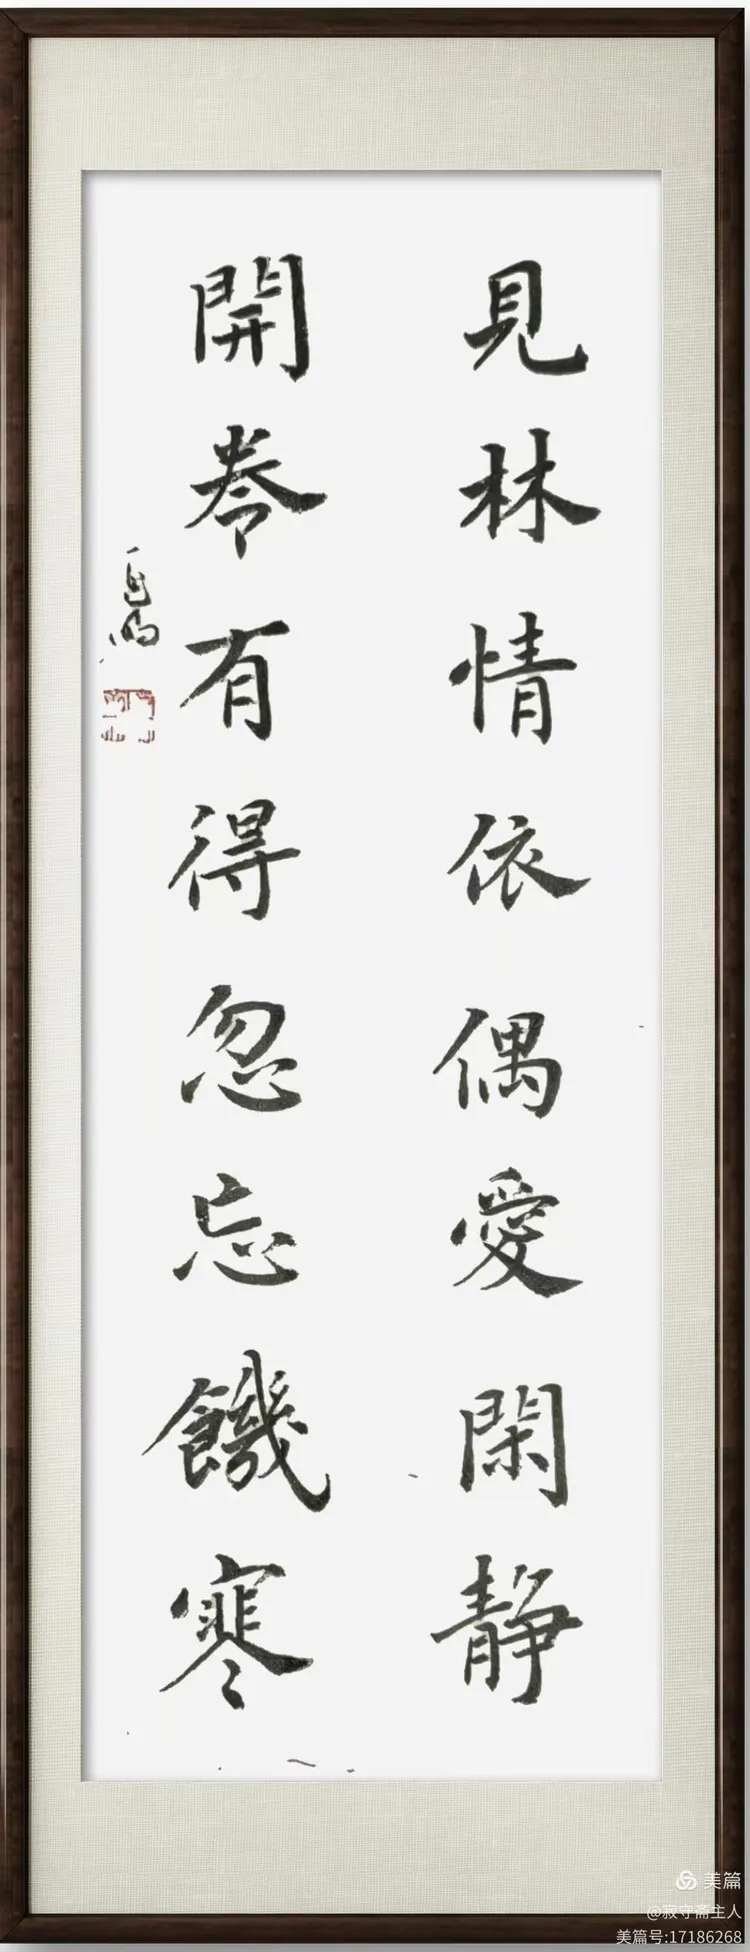 見林情依偶愛閑静
開卷有得忽忘饑寒
美篇
@寂守斋主人
美篇号:17186268